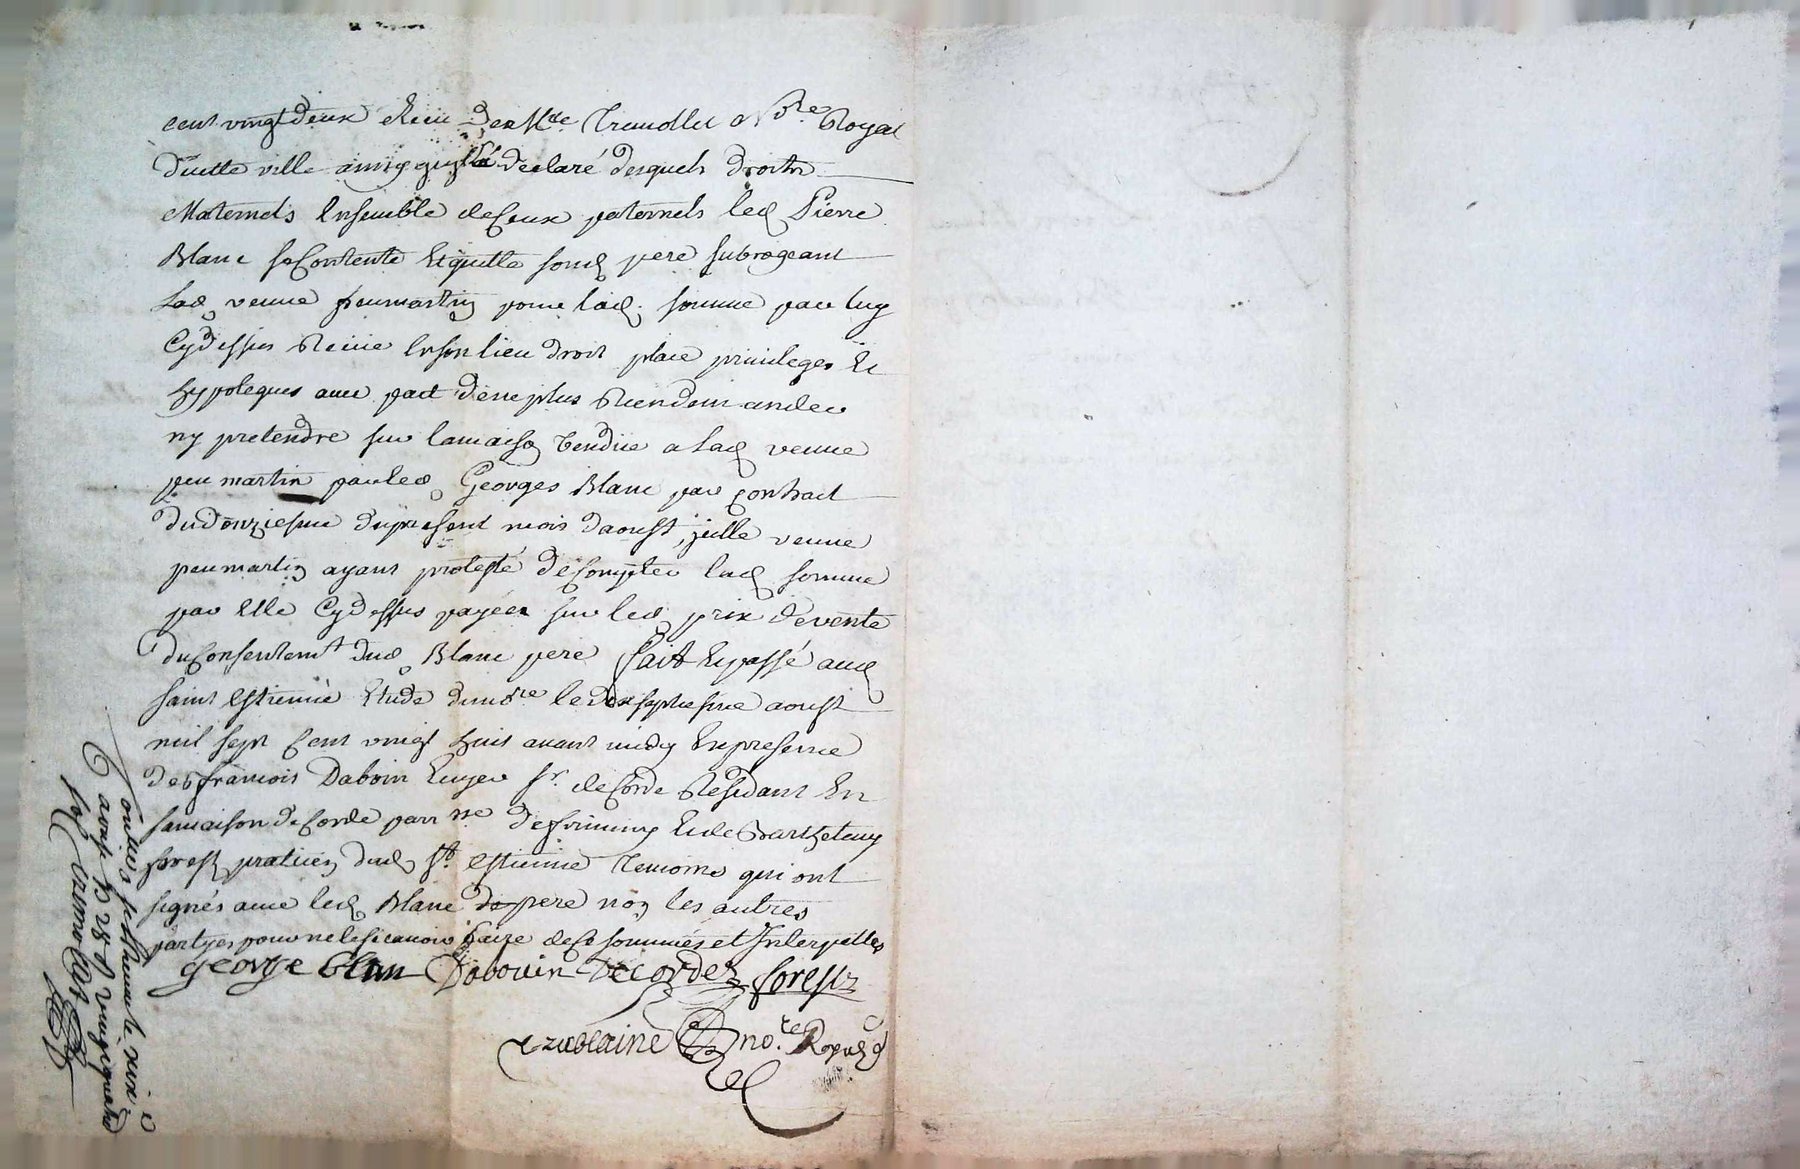 cent vingt deux Receu de Me Treuollet Nore Royal
d'icette ville ainsy qu'il a declaré desquels droits
Maternels Ensemble de Ceux paternels led Pierre
Blanc se Contente Et quitte sond pere subrogeant
lad veuue peumartin pour lad somme par luy
Cydessus Receüe En son lieu droit place priuileges Et
hypoteques auec pact de ne plus Rien demander
ny pretendre sur la maison Vendüe a lad veuue
peumartin par led Georges Blanc par contract
du douziesme du present mois d'aoust, jcelle veuue
peumartin ayant protesté de Compter lad somme
par Elle Cydessus payéer sur led prix de vente
du Consentemt dud Blanc pere fait Et passé aud
saint Estienne Etude du nore le dixseptiesme aoust
mil sept Cent vingt huit auant midy En presence
de françois Daboin Escuyer sr. de Corde Residant En
sa maison de Corde parr sse de firminy Et de Barthelemy
forest praticien dud St. Estienne Temoins qui ont
signés auec led Blanc pere non les autres
partyes pour ne le scauoir faire de Ce sommées et Interpellés
george blan Dabouin Decordes forest
no.re Royal
aoust 1728